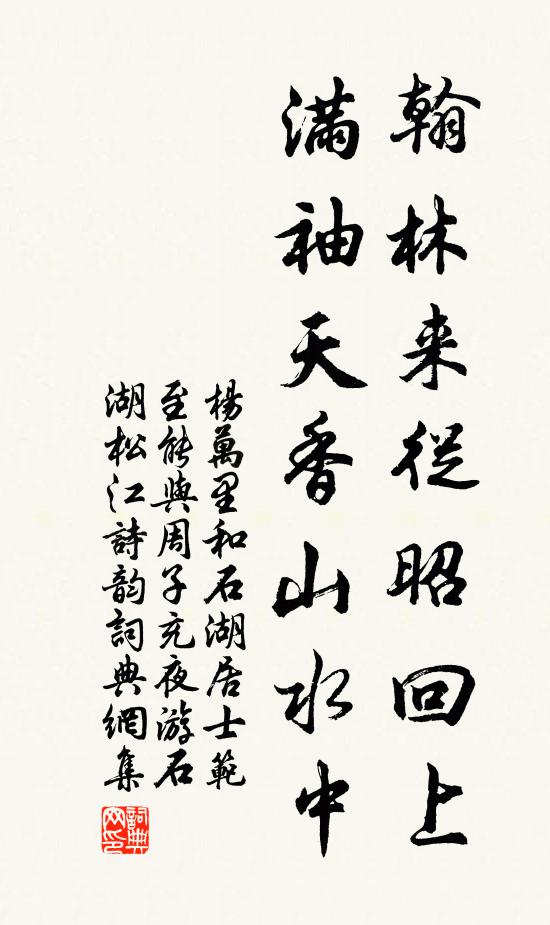 翰林来從昭回上
滿袖天香山水中
楊萬里和石湖居士範
至能與周子充夜游石
湖松江詩韵詞典網集
詞典网印